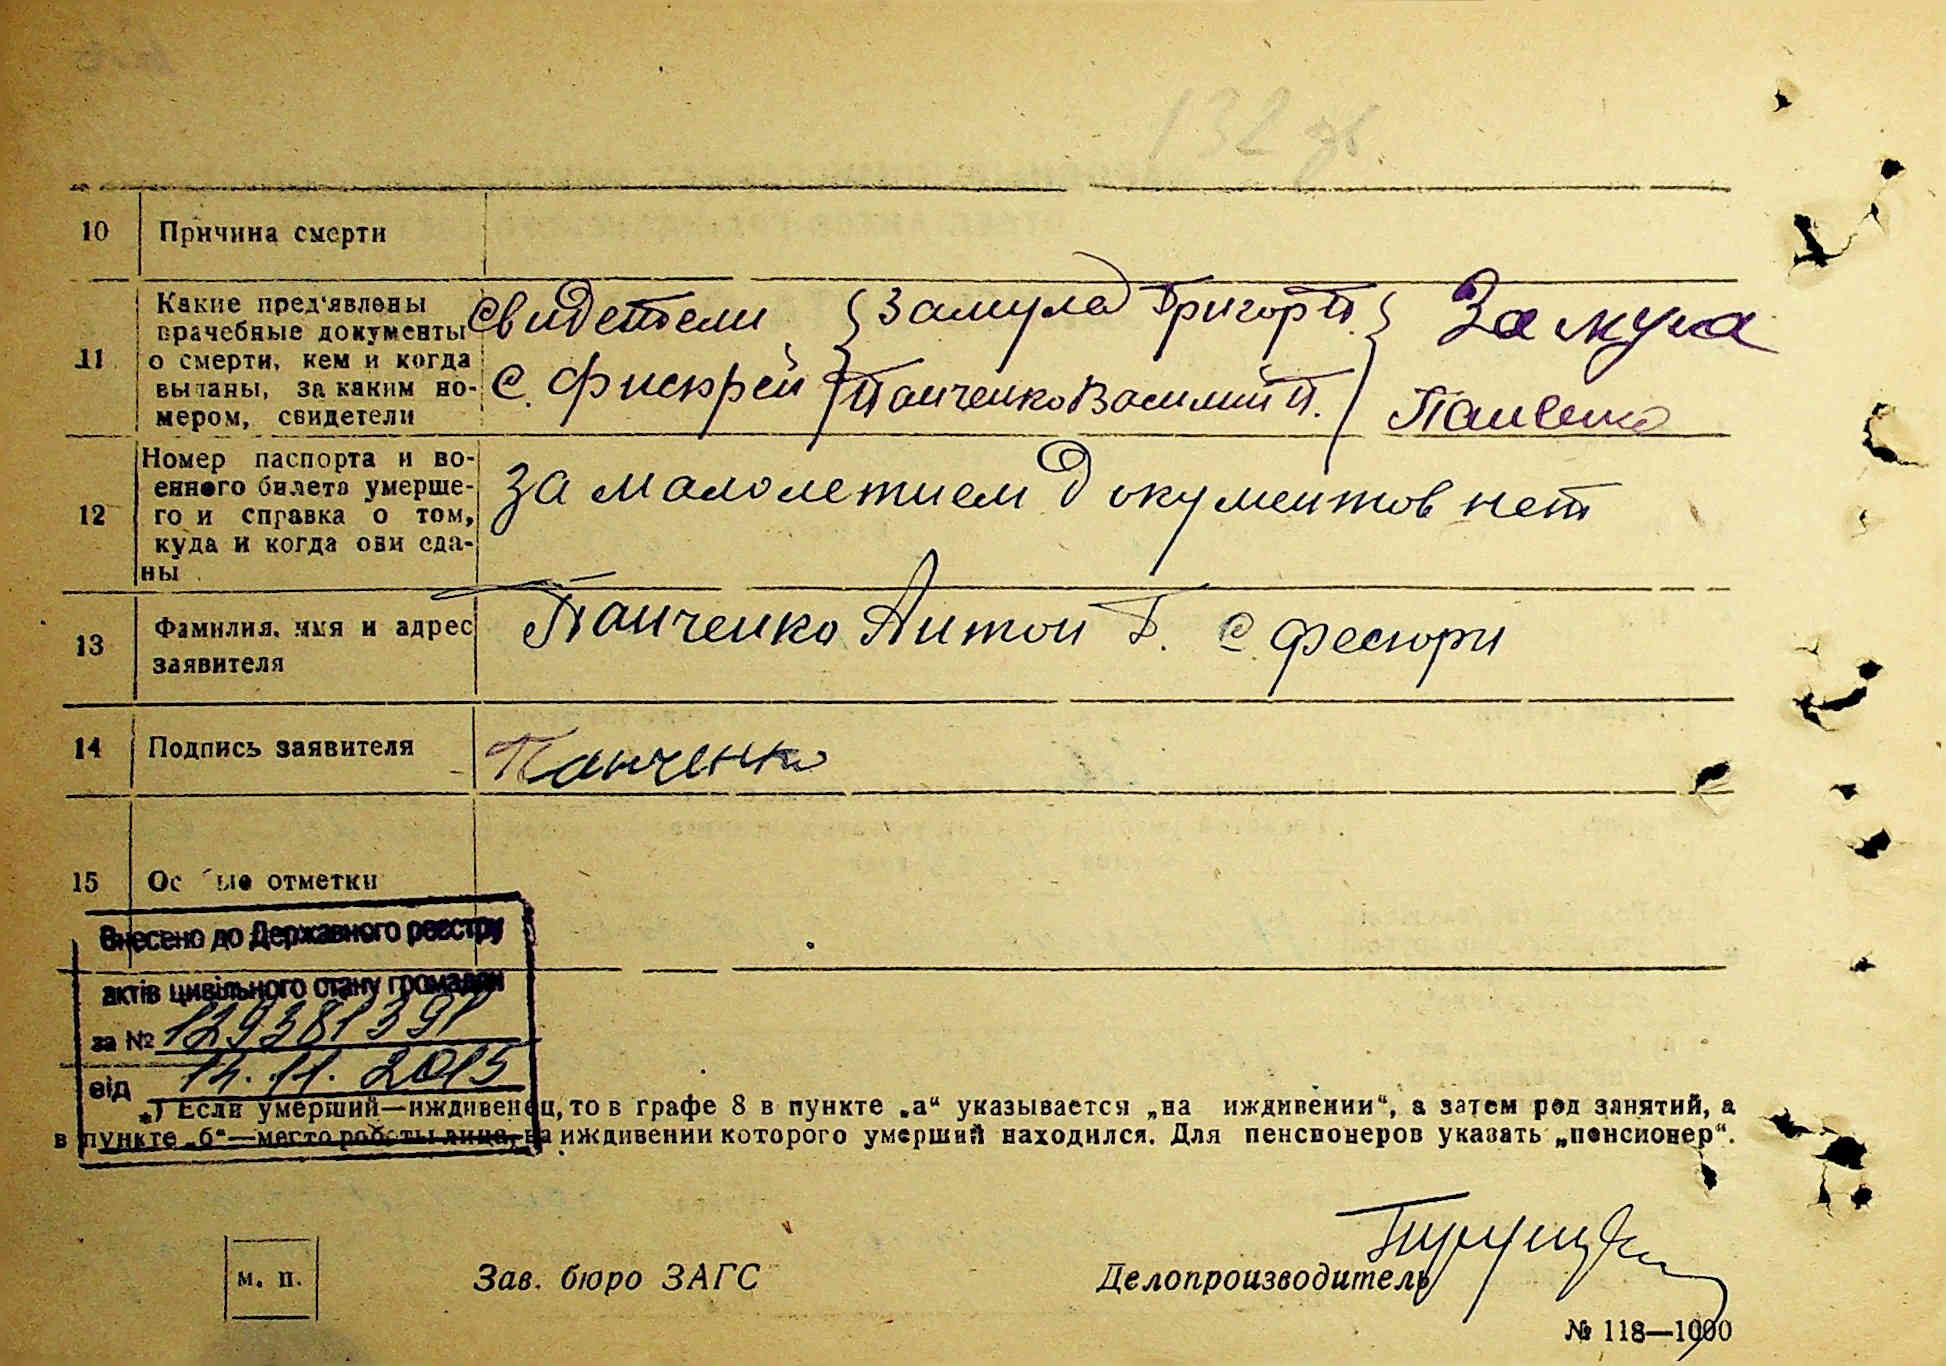 132 зв.
10 Причина смерти
11 Какие пред'явлены врачебные документы о смерти, кем и когда выданы, за каким номером, свидетели
Свидетели { Замула Григор П. } Замула
с. { Панченко Василий П.
12 Номер паспорта и во-
енного билета умерше-
го и справка о том,
куда и когда они сда-
ны
За малолетием документов нет
13 Фамилия, имя и адрес
заявителя
Панченко Антон Г. с
14 Подпись заявителя
Панченко
15 Ос ые отметки
Внесено до Державного реєстру
актів цивільного стану громадян
за № 129381391
від 14.11.2015
*) Если умерший—иждивенец, то в графе 8 в пункте „а“ указывается „на иждивении“, а затем род занятий, а
в пункте „б“—место работы лица, на иждивении которого умерший находился. Для пенсионеров указать „пенсионер“.
м. п.
Зав. бюро ЗАГС
Делопроизводитель
№ 118—1000